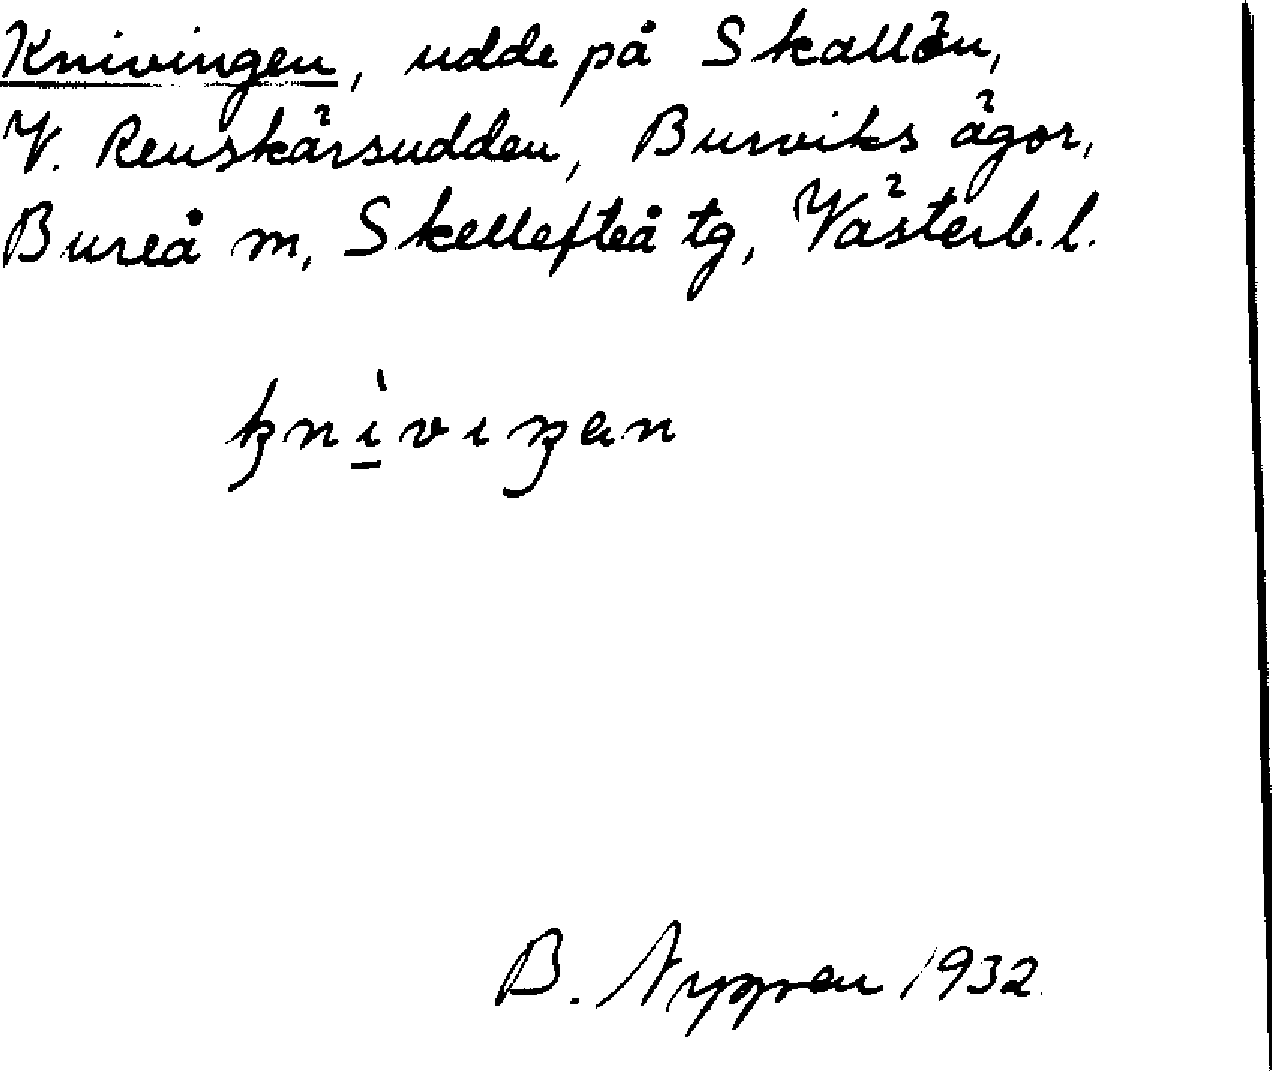 Knivingen, udde på Skallön,
V. Renskärsudden, Burviks ägor,
Bureå m, Skellefteå tg, Västerb. l.
knìviŋen
B. Nyman 1932